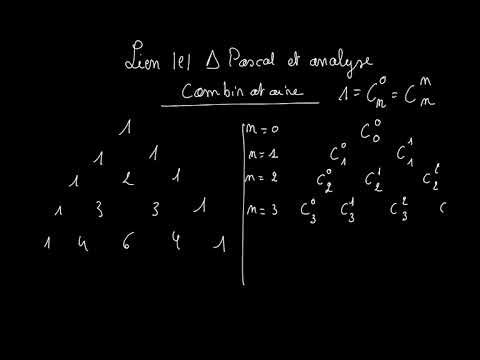 Lien |e| Δ Pascal et analyse
Combinatoire
1 = C_n^0 = C_n^n
1
1 1
1 2 1
1 3 3 1
1 4 6 4 1
n=0 C_0^0
n=1 C_1^0 C_1^1
n=2 C_2^0 C_2^1 C_2^2
n=3 C_3^0 C_3^1 C_3^2 C